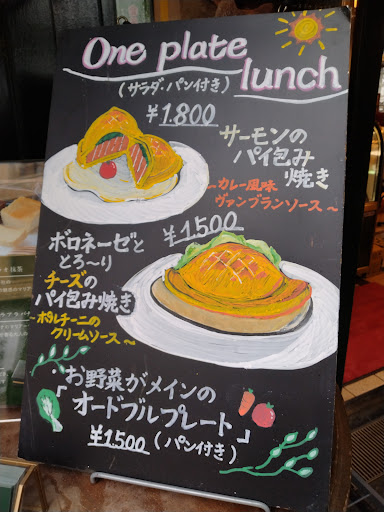 One plate
lunch
(サラダ・パン付き)
¥1.800
サーモンの
パイ包み
焼き
~カレー風味
ヴァンブランソース~
¥1500
ボロネーゼと
とろ~り
チーズの
パイ包み焼き
~ポルチーニの
クリームソース~
お野菜がメインの
「オードブルプレート」
¥1500(パン付き)